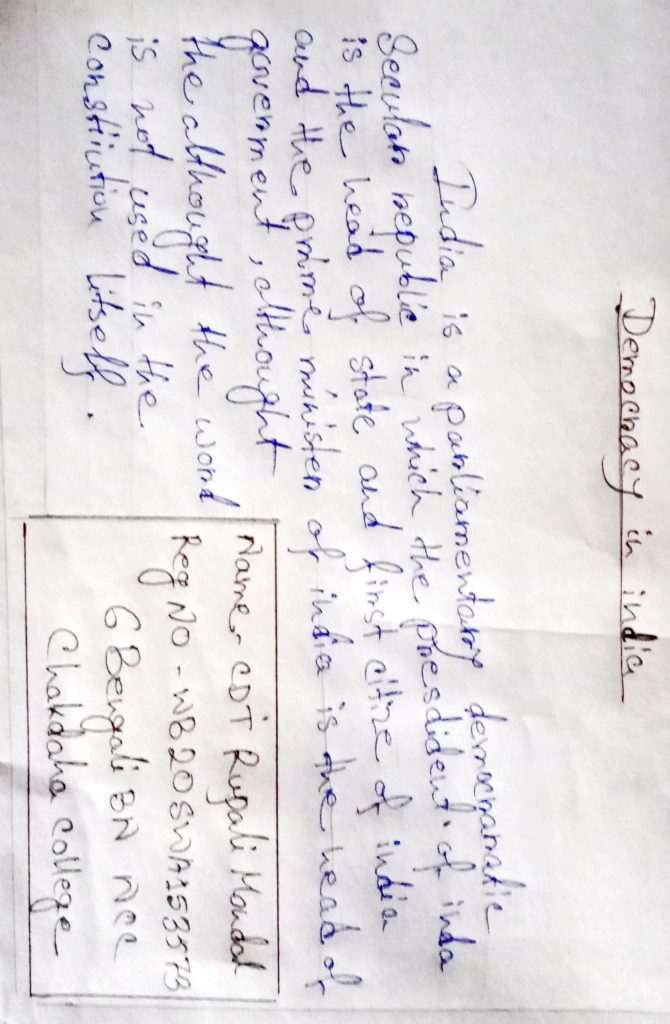 Democracy in india
India is a parliamentary democramatic
Secular republic in which the presdident. of inda
is the head of state and first citize of india
and the prime minister of india is the head of
government, althought
the althought the word
is not used in the
constiution litself.
Name - CDT Rupali Mondal
Reg NO - WB20SWA153573
6 Bengali BN NCC
Chakdaha College